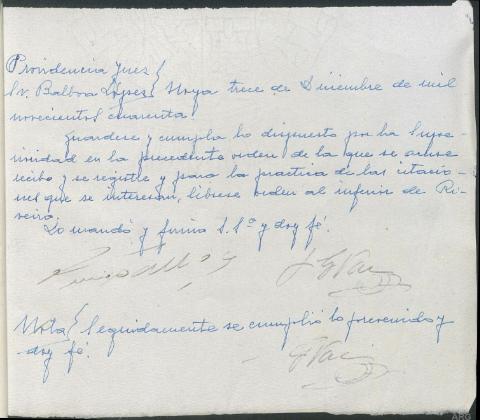 Providencia Juez
Sr. Balboa López Noya trece de Diciembre de mil
novecientos cuarenta.
Guardese y cumpla lo dispuesto por la Supe-
rioridad en la precedente orden de la que se acuse
recibo y se registre y para la practica de las citacio-
nes que se interesan, líbrese orden al inferior de Ri-
veira.
Lo mandó y firma S. Sª y doy fé.
Nota Seguidamente se cumplió lo prevenido y
doy fé.
ARG